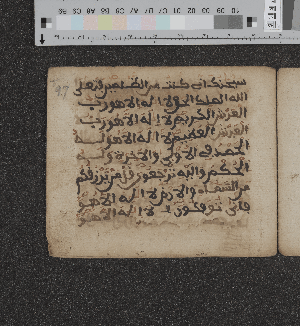 سبحنك اني كنت من الظلمين فتعلى
الله الملك الحق لا اله الا هو رب
العرش الكريم لا اله الا هو رب
العرش العظيم لا اله الا هو له
الحمد في الاولى والاخرة وله
الحكم واليه ترجعون من يرزقكم
من السماء والارض لا اله الا هو
فانى توفكون لا اله الا هو